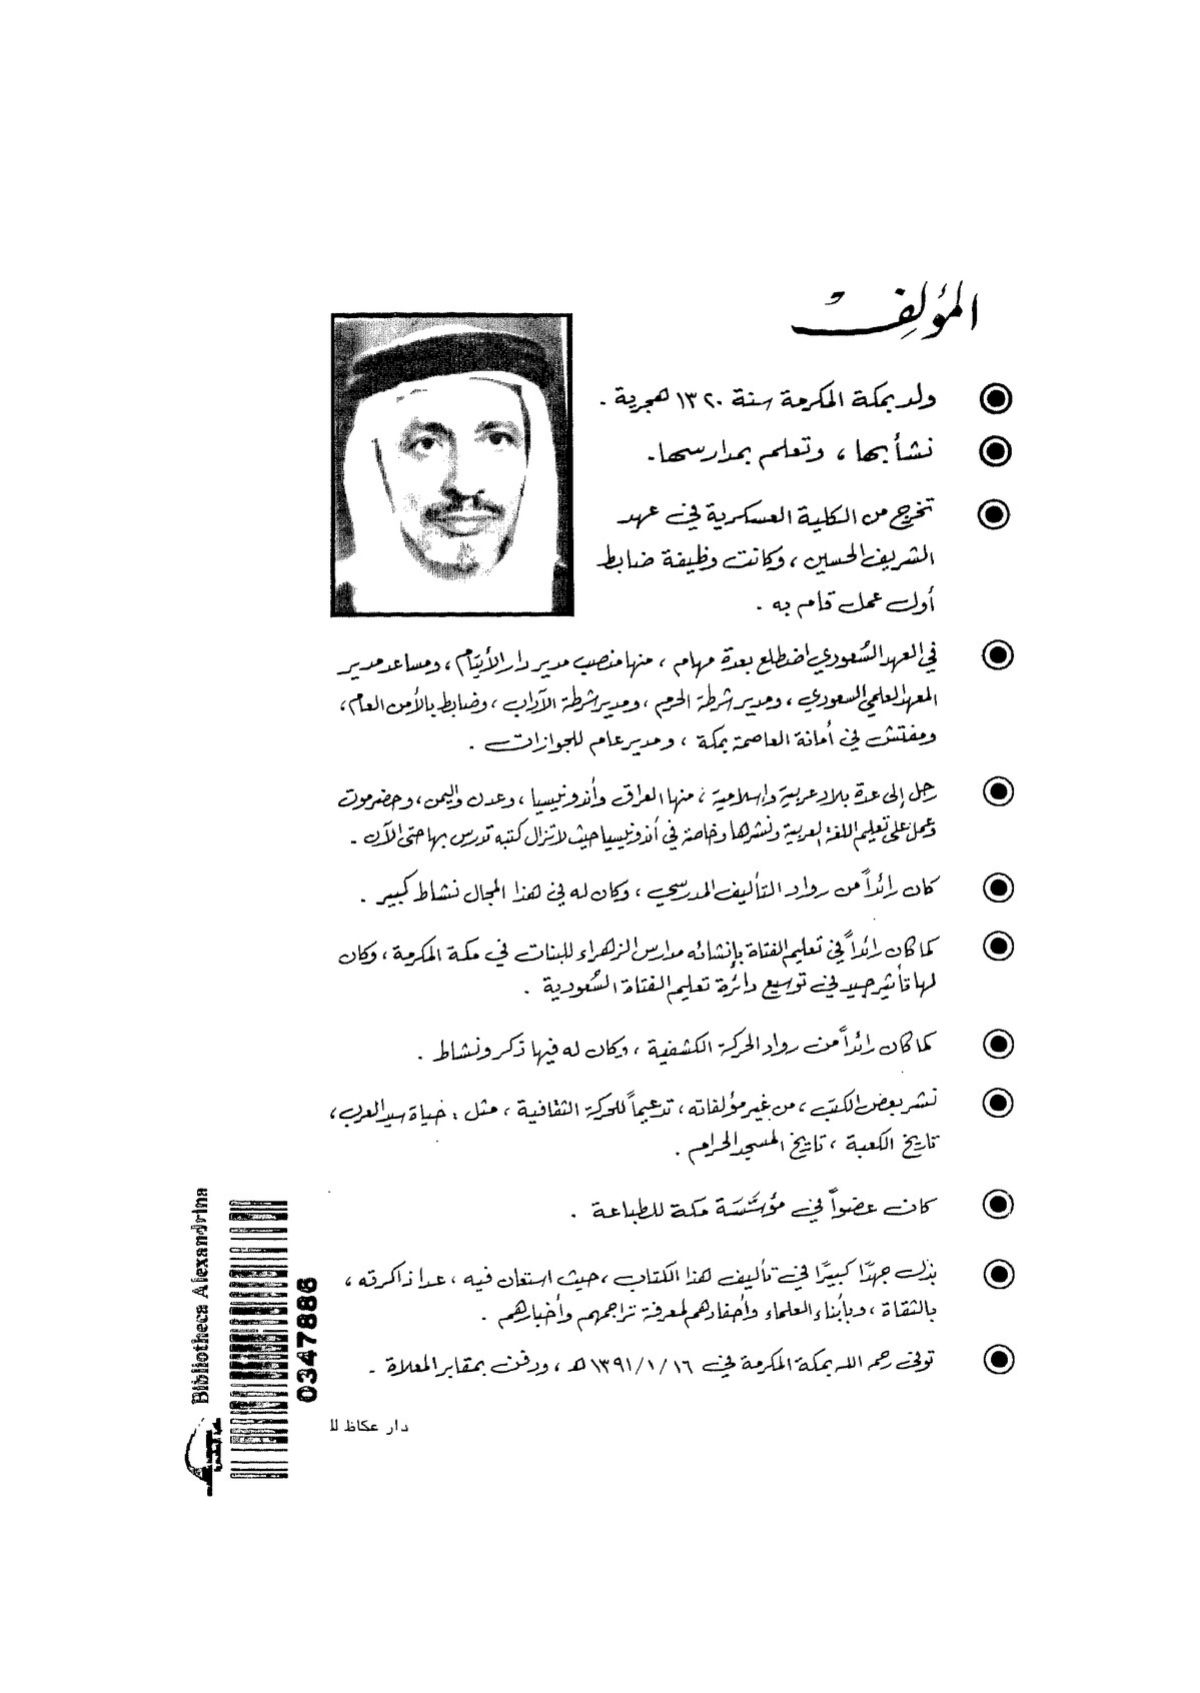 المؤلف
ولد بمكة المكرمة سنة ١٣٢٠ هجرية .
نشأ بها ، وتعلم بمدارسها .
تخرج من الكلية العسكرية في عهد
الشريف الحسين ، وكانت وظيفة ضابط
أول عمل قام به .
في العهد السُعودي اضطلع بعدة مهام ، منها منصب مدير دار الأيتام ، ومساعد مدير
المعهد العلمي السعودي ، ومدير شرطة الحرم ، ومدير شرطة الآداب ، وضابط بالأمن العام ،
ومفتش في أمانة العاصمة بمكة ، ومدير عام للجوازات .
رحل إلى عدة بلاد عربية وإسلامية ، منها العراق وأندونيسيا ، وعدن واليمن ، وحضرموت
وعمل على تعليم اللغة العربية ونشرها وخاصة في أندونيسيا حيث لا تزال كتبه تدرس بها حتى الآن .
كان رائداً من رواد التأليف المدرسي ، وكان له في هذا المجال نشاط كبير .
كما كان رائداً في تعليم الفتاة بإنشائه مدارس الزهراء للبنات في مكة المكرمة ، وكان
لها تأثير جيد في توسيع دائرة تعليم الفتاة السُعودية .
كما كان رائداً من رواد الحركة الكشفية ، وكان له فيها ذكر ونشاط .
نشر بعض الكتب ، من غير مؤلفاته ، تدعيماً للحركة الثقافية ، مثل : حياة سيد العرب ،
تاريخ الكعبة ، تاريخ المسجد الحرام .
كان عضواً في مؤسَّسَة مكة للطباعة .
بذل جهدًا كبيرًا في تأليف هذا الكتاب ، حيث استعان فيه ، عدا ذاكرته ،
بالثقاة ، وبأبناء العلماء وأحفادهم لمعرفة تراجمهم وأخبارهم .
توفى رحمه الله بمكة المكرمة في ١٣٩١/١/١٦ هـ ، ودفن بمقابر المعلاة .
دار عكاظ لل
Bibliotheca Alexandrina
0347886